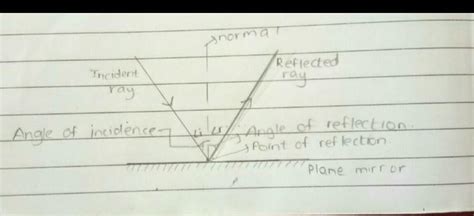 normal
Incident
ray
Reflected
ray
Angle of incidence
∠i
∠r
Angle of reflection.
Point of reflection.
Plane mirror